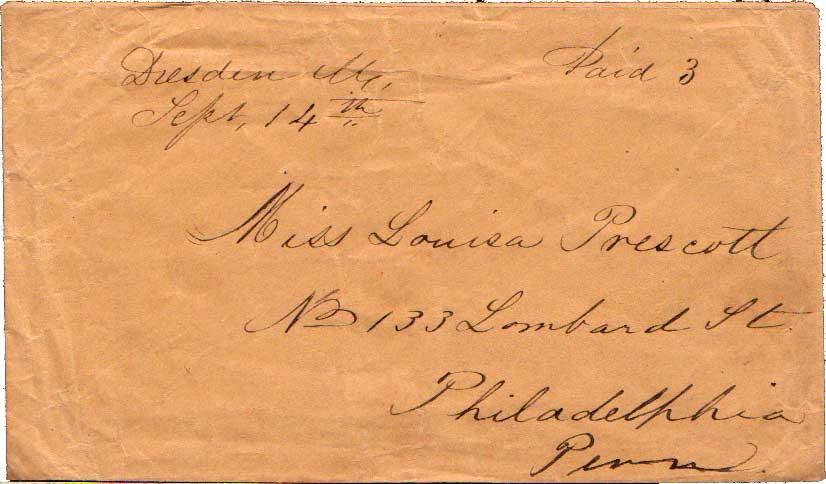 Dresden Me,
Sept, 14th
Paid 3
Miss Louisa Prescott
No 133 Lombard St.
Philadelphia
Penn.